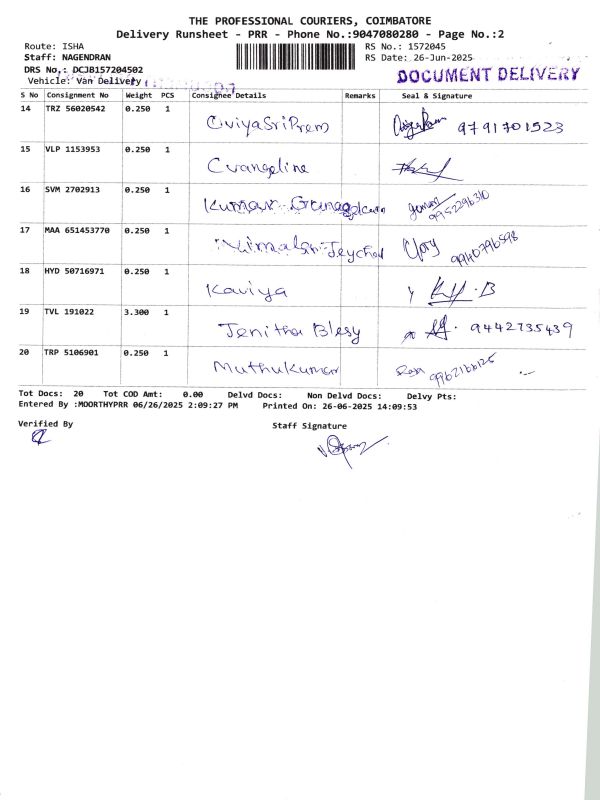 THE PROFESSIONAL COURIERS, COIMBATORE
Delivery Runsheet - PRR - Phone No.:9047080280 - Page No.:2
Route: ISHA RS No.: 1572045
Staff: NAGENDRAN RS Date: 26-Jun-2025
DRS No.: DCJB157204502 DOCUMENT DELIVERY
Vehicle: Van Delivery
S No Consignment No Weight PCS Consignee Details Remarks Seal & Signature
14 TRZ 56020542 0.250 1 OviyaSriPrem 9791701523
15 VLP 1153953 0.250 1 Evangeline
16 SVM 2702913 0.250 1 Kumar 9952296310
17 MAA 651453770 0.250 1 Glory 9940796598
18 HYD 50716971 0.250 1 Kaviya
19 TVL 191022 3.300 1 Jenitha Blesy 9442735439
20 TRP 5106901 0.250 1 Muthukumar
Tot Docs: 20 Tot COD Amt: 0.00 Delvd Docs: Non Delvd Docs: Delvy Pts:
Entered By :MOORTHYPRR 06/26/2025 2:09:27 PM Printed On: 26-06-2025 14:09:53
Verified By Staff Signature